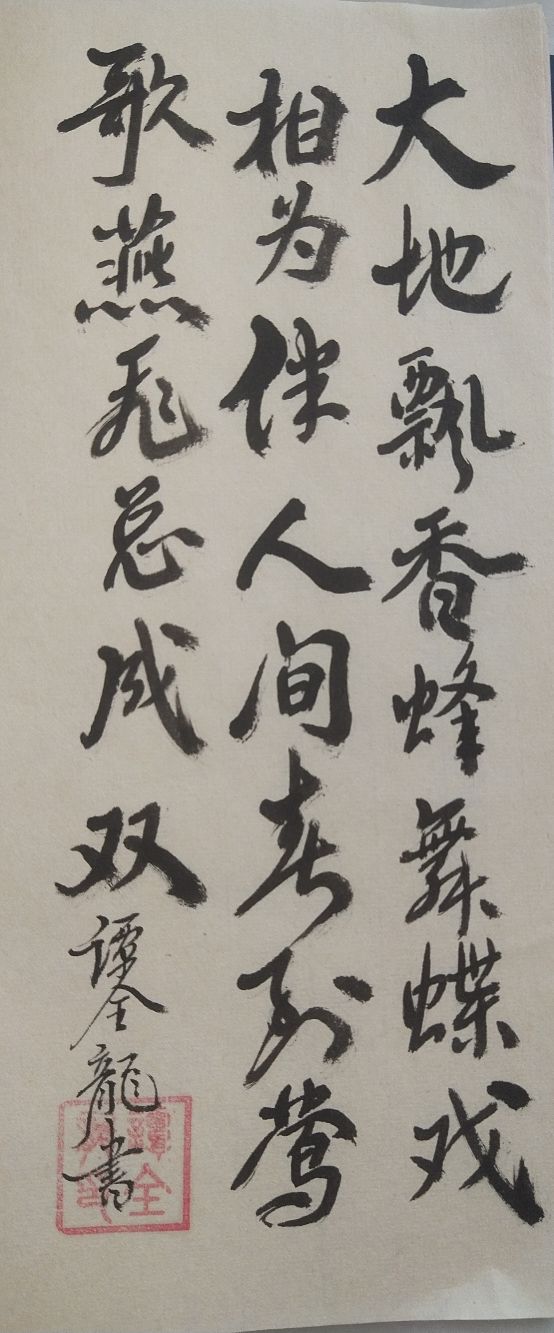 大地飘香蜂舞蝶戏
相为伴人间春到莺
歌燕飞总成双
谭全龍书